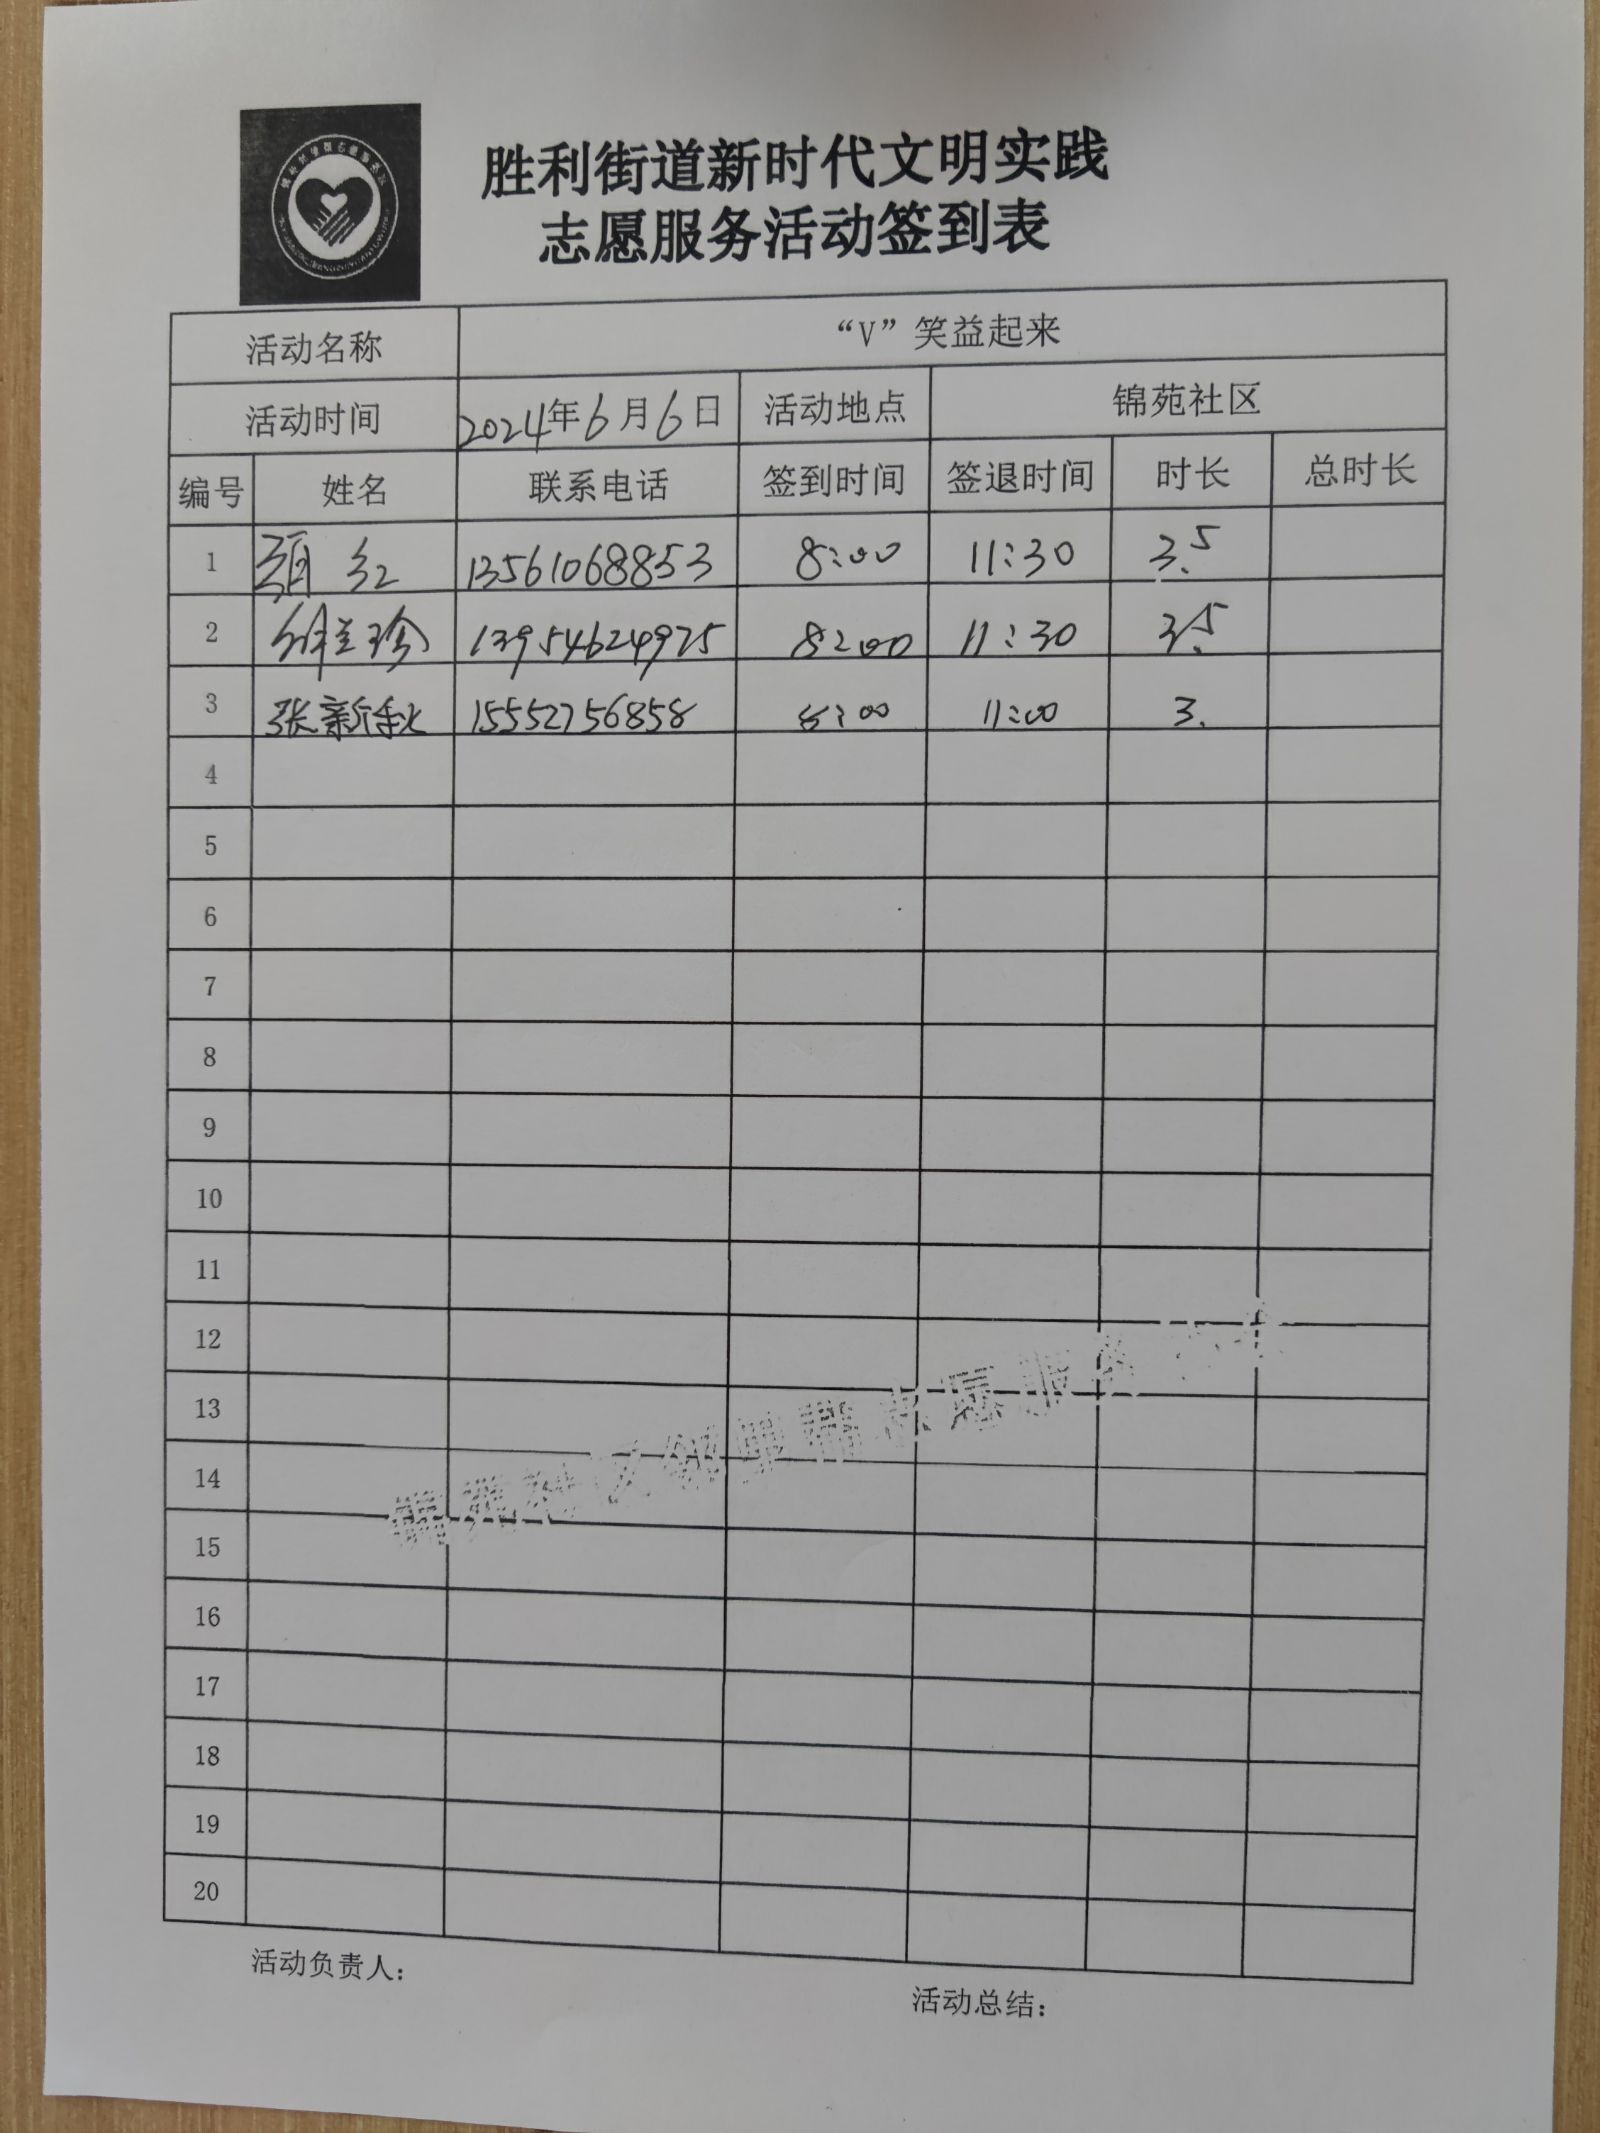 胜利街道新时代文明实践
志愿服务活动签到表
活动名称 “V”笑益起来
活动时间 2024年6月6日 活动地点 锦苑社区
编号 姓名 联系电话 签到时间 签退时间 时长 总时长
1 红 13561068853 8:00 11:30 3.5
2 兰珍 13954624975 8:00 11:30 3.5
3 张新秋 15552756858 8:00 11:00 3.
4
5
6
7
8
9
10
11
12
13
14
15
16
17
18
19
20
锦苑社区邻里帮志愿服务
活动负责人：
活动总结：